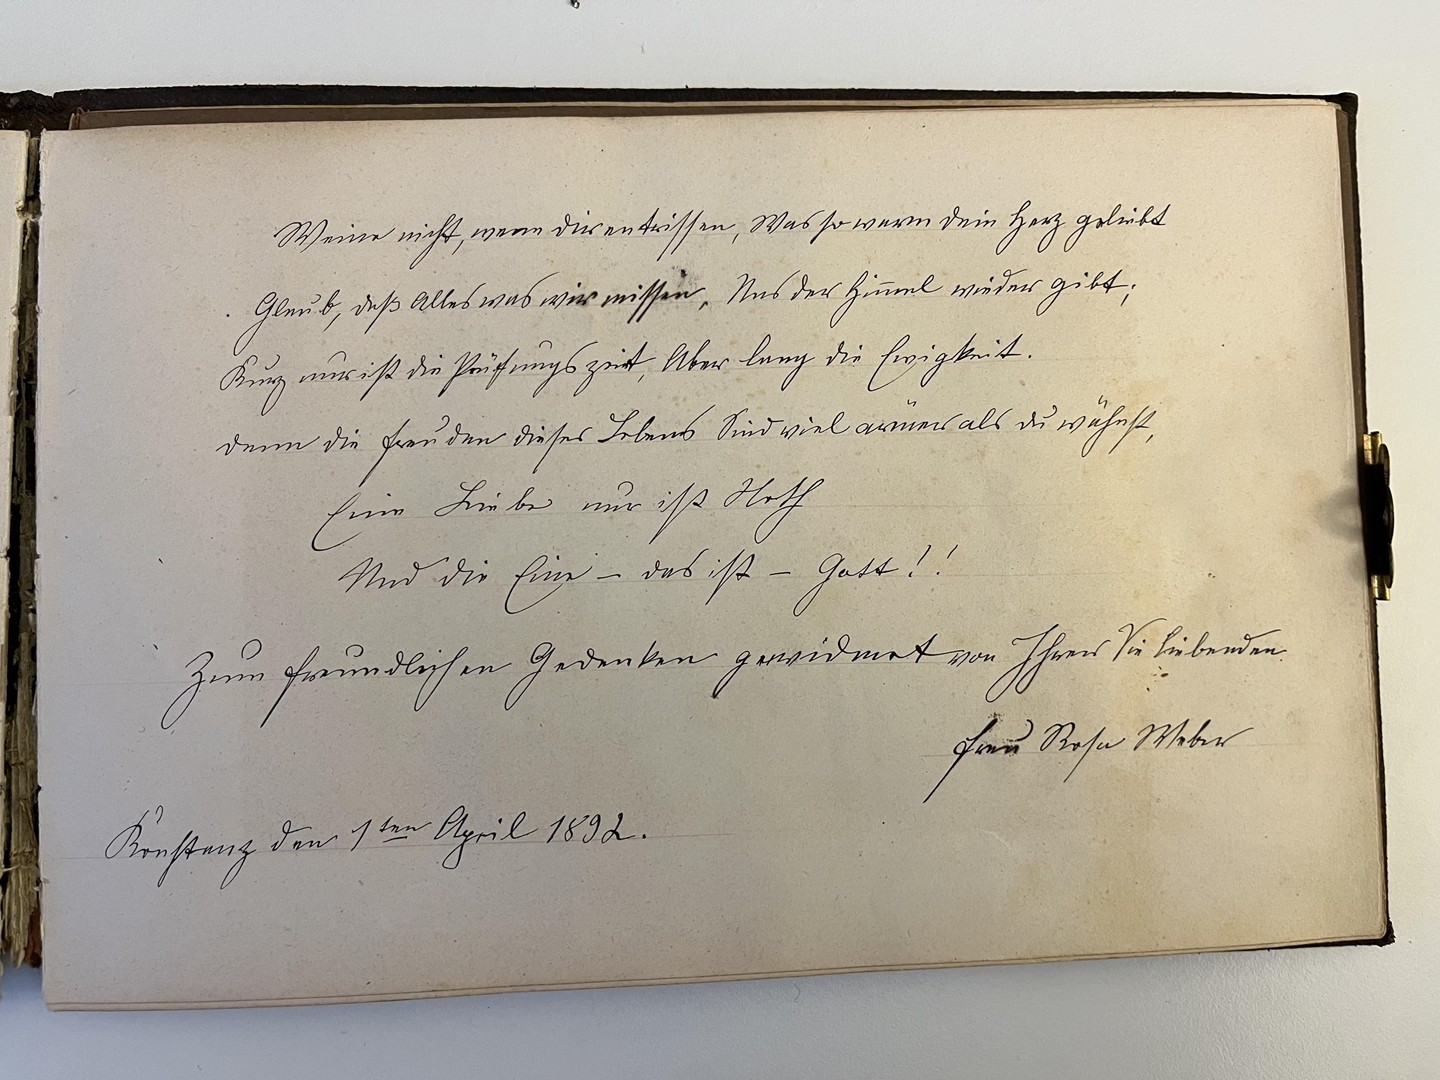 Weine nicht, wenn dir entrissen, Was so warm dein Herz geliebt
Glaub, daß Alles was wir missen, Uns der Himmel wieder gibt;
Kurz nur ist die Prüfungszeit, Aber lang die Ewigkeit.
denn die Freuden dieses Lebens Sind viel ärmer als du wähnst,
Eine Liebe nur ist Noth
Und die Eine – das ist – Gott!!
Zum freundlichen Gedenken gewidmet von Ihrer Sie liebenden
Frau Rosa Weber
Konstanz den 1ten April 1892.